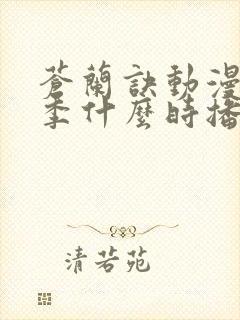 蒼蘭訣動漫
季什麼時播
清若苑